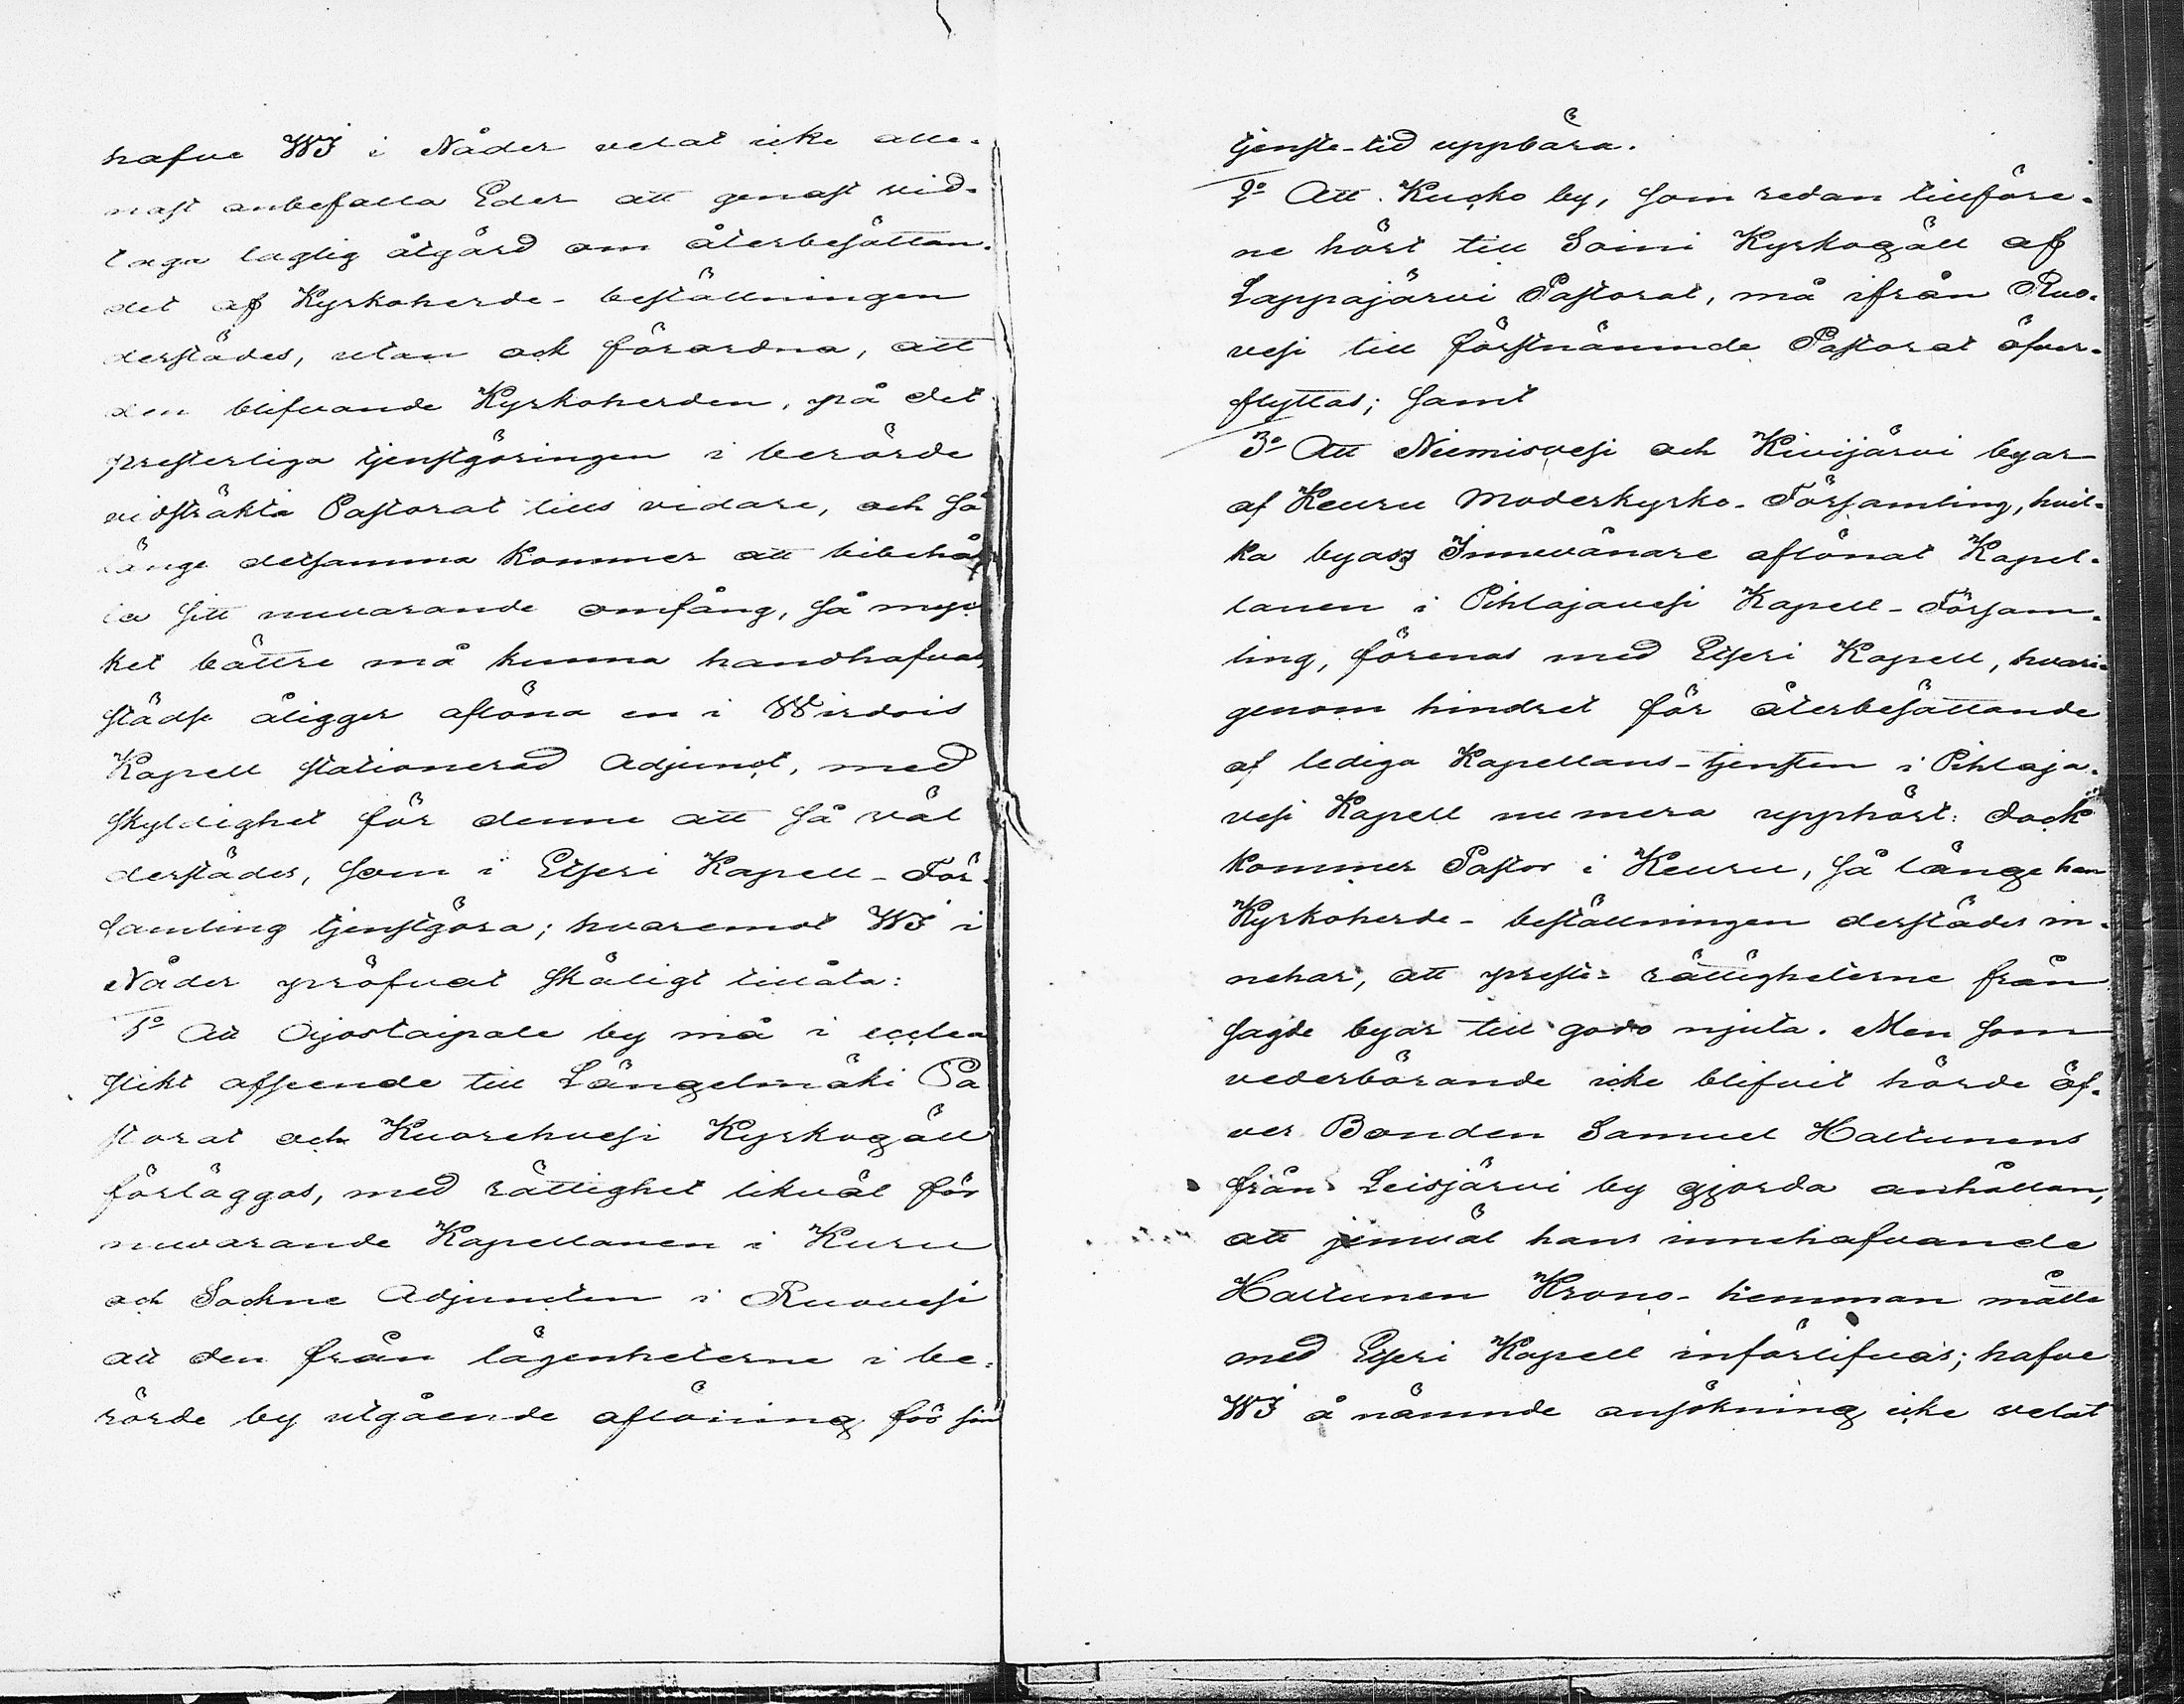 hafve WJ i Nåder velat icke alle-
nast anbefalla Eder att genast vid-
taga laglig åtgärd om återbesättan-
det af Kyrkoherde-beställningen
derstädes, utan ock förordna, att
den blifvande Kyrkoherden, på det
presterliga tjenstgöringen i berörde
vidsträkta Pastorat tills vidare, och så
länge detsamma kommer att bibehål
la sitt nuvarande omfång, så myc
ket bättre må kunna handhafvas,
städse åligger aflöna en i Wirdois
Kapell stationerad Adjunct, med
skyldighet för denne att så väl
derstädes, som i Etseri Kapell-För-
samling tjenstgöra; hvaremot WJ i
Nåder pröfvat skäligt tillåta:
1o Att Ajostaipale by må i eccle
stikt afseende till Längelmäki Pa
storat och Kuorehvesi Kyrkogäll
förläggas, med rättighet likväl för
nuvarande Kapellanen i Kuru
och Sockne Adjuncten i Ruovesi
att den från lägenheterne i be-
rörde by utgående aflöning för sin
tjenste-tid uppbära.
2o Att Kucko by, som redan tillföre-
ne hört till Soini Kyrkogäll af
Lappajärvi Pastorat, må ifrån Ruo-
vesi till förstnämnde Pastorat öfver-
flyttas; samt
3o Att Niemisvesi och Kivijärvi byar
af Keuru Moderkyrko-Församling, hvil-
ka byars Innevånare aflönat Kapel-
lanen i Pihlajavesi Kapell-Försam-
ling, förenas med Etseri Kapell, hvari-
genom hindret för återbesättande
af lediga Kapellans-tjensten i Pihlaja-
vesi Kapell numera upphört: dock
kommer Pastor i Keuru, så länge han
Kyrkoherde-beställningen derstädes in-
nehar, att preste-rättigheterne från
sagde byar till godo njuta. Men som
vederbörande icke blifvit hörde öf-
ver Bonden Samuel Hattunens
från Leisjärvi by gjorda anhållan,
att jemväl hans innehafvande
Hattunen Krono-hemman måtte
med Etseri Kapell införlifvas; hafve
WJ å nämnde ansökning icke velat